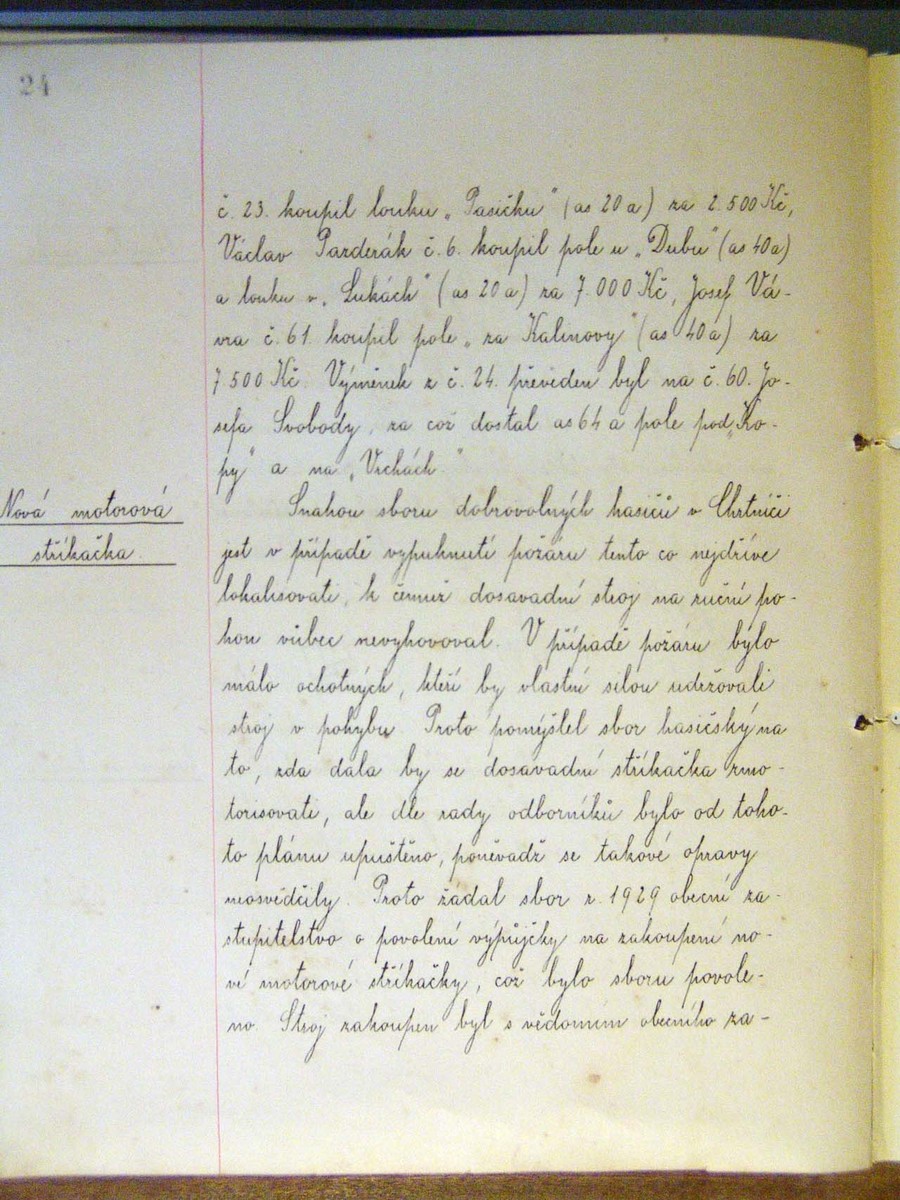 24
č. 23. koupil louku „Pasičku" (as 20 a) za 2.500 Kč,
Václav Pazderák č. 6. koupil pole u „Dubu" (as 40 a)
a louku v „Lukách" (as 20 a) za 7.000 Kč, Josef Vá-
vra č. 61. koupil pole „za Kalinovy" (as 40 a) za
7 500 Kč. Výměnek z č. 24. převeden byl na č. 60. Jo-
sefa Svobody, za což dostal as 64 a pole pod „Ko-
py" a na „Vrchách."
Nová motorová
stříkačka.
Snahou sboru dobrovolných hasičů v Chrtníči
jest v případě vypuknutí požáru tento co nejdříve
lokalisovati, k čemuž dosavadní stroj na ruční po-
hon vůbec nevyhovoval. V případě požáru bylo
málo ochotných, kteří by vlastní silou udržovali
stroj v pohybu. Proto pomýšlel sbor hasičský na
to, zda dala by se dosavadní stříkačka zmo-
torisovati, ale dle rady odborníků bylo od toho-
to plánu upuštěno, poněvadž se takové opravy
neosvědčily. Proto žádal sbor r. 1929 obecní za-
stupitelstvo o povolení výpůjčky na zakoupení no-
vé motorové stříkačky, což bylo sboru povole-
no. Stroj zakoupen byl s vědomím obecního za-